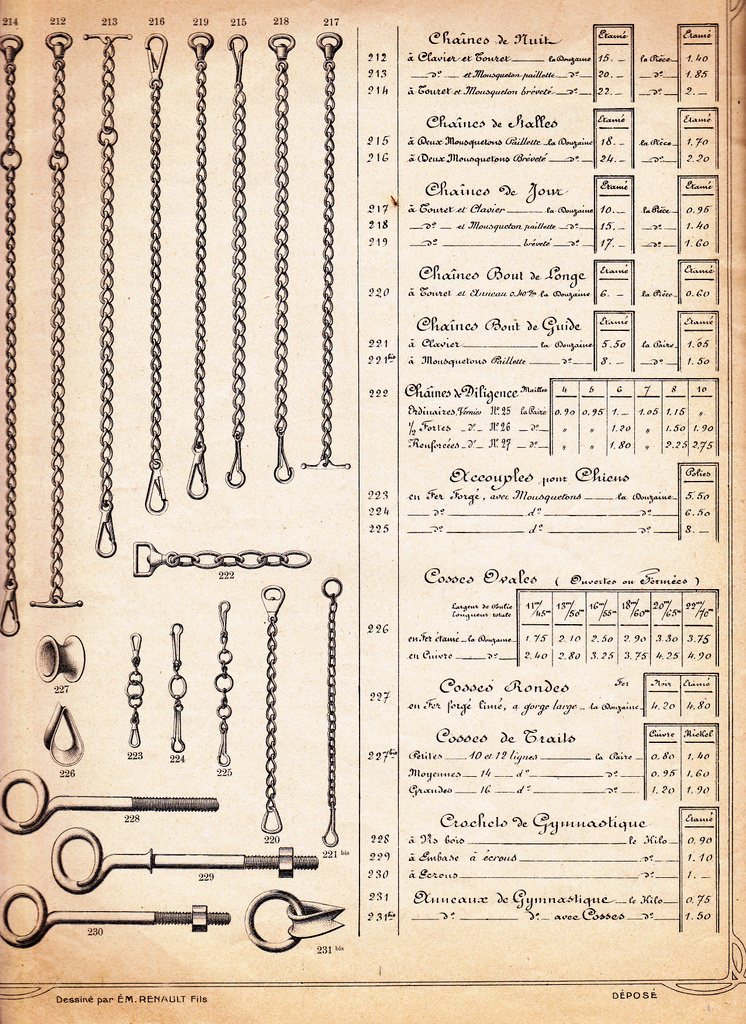 214 212 213 216 219 215 218 217
Chaînes de Nuit Etamé Etamé
212 à Clavier et Touret la Douzaine 15. — la Pièce 1.40
213 — do — et Mousqueton paillette — do — 20. — — do — 1.85
214 à Touret et Mousqueton bréveté — do — 22. — — do — 2. —
Chaînes de Malles Etamé Etamé
215 à Deux Mousquetons Paillette la Douzaine 18. — la Pièce 1.70
216 à Deux Mousquetons Bréveté — do — 24. — — do — 2.20
Chaînes de Jour Etamé Etamé
217 à Touret et Clavier la Douzaine 10. — la Pièce 0.95
218 — do — et Mousqueton paillette — do — 15. — — do — 1.40
219 — do — bréveté — do — 17. — — do — 1.60
Chaînes Bout de Longe Etamé Etamé
220 à Touret et Anneau 0.40 la Douzaine 6. — la Pièce 0.60
Chaînes Bout de Guide Etamé Etamé
221 à Clavier la Douzaine 5.50 la Paire 1.05
221 bis à Mousquetons Paillette — do — 8. — — do — 1.50
222 Chaînes de Diligence Mailles 4 5 6 7 8 10
Ordinaires, Vernies No 25 la Paire 0.90 0.95 1. — 1.05 1.15 "
1/2 Fortes — do — No 26 — do — " " 1.20 " 1.50 1.90
Renforcées — do — No 27 — do — " " 1.80 " 2.25 2.75
Accouples pour Chiens Polies
223 en Fer Forgé, avec Mousquetons la Douzaine 5.50
224 — do — do — do — 6.50
225 — do — do — do — 8. —
Cosses Ovales (Ouvertes ou Fermées)
Largeur de Poulie 11m/ 13m/ 16m/ 18m/ 20m/ 22m/
Longueur totale 45m 50m 55m 60m 65m 70m
226 en Fer étamé la Douzaine 1.75 2.10 2.50 2.90 3.30 3.75
en Cuivre — do — 2.40 2.80 3.25 3.75 4.25 4.90
Cosses Rondes Fer Noir Etamé
227 en Fer forgé limé, a gorge large la Douzaine 4.20 4.80
Cosses de Traits Cuivre Nickel
227 bis Petites 10 et 12 lignes la Paire 0.80 1.40
Moyennes — 14 — do — do — 0.95 1.60
Grandes — 16 — do — do — 1.20 1.90
Crochets de Gymnastique Etamé
228 à Vis bois le Kilo 0.90
229 à Embase à écrous — do — 1.10
230 à Ecrous — do — 1. —
231 Anneaux de Gymnastique le Kilo 0.75
231 bis — do — do — avec Cosses — do — 1.50
222
227
226
223
224
225
220
221 bis
228
229
230
231 bis
Dessiné par ÉM. RENAULT Fils
DÉPOSÉ